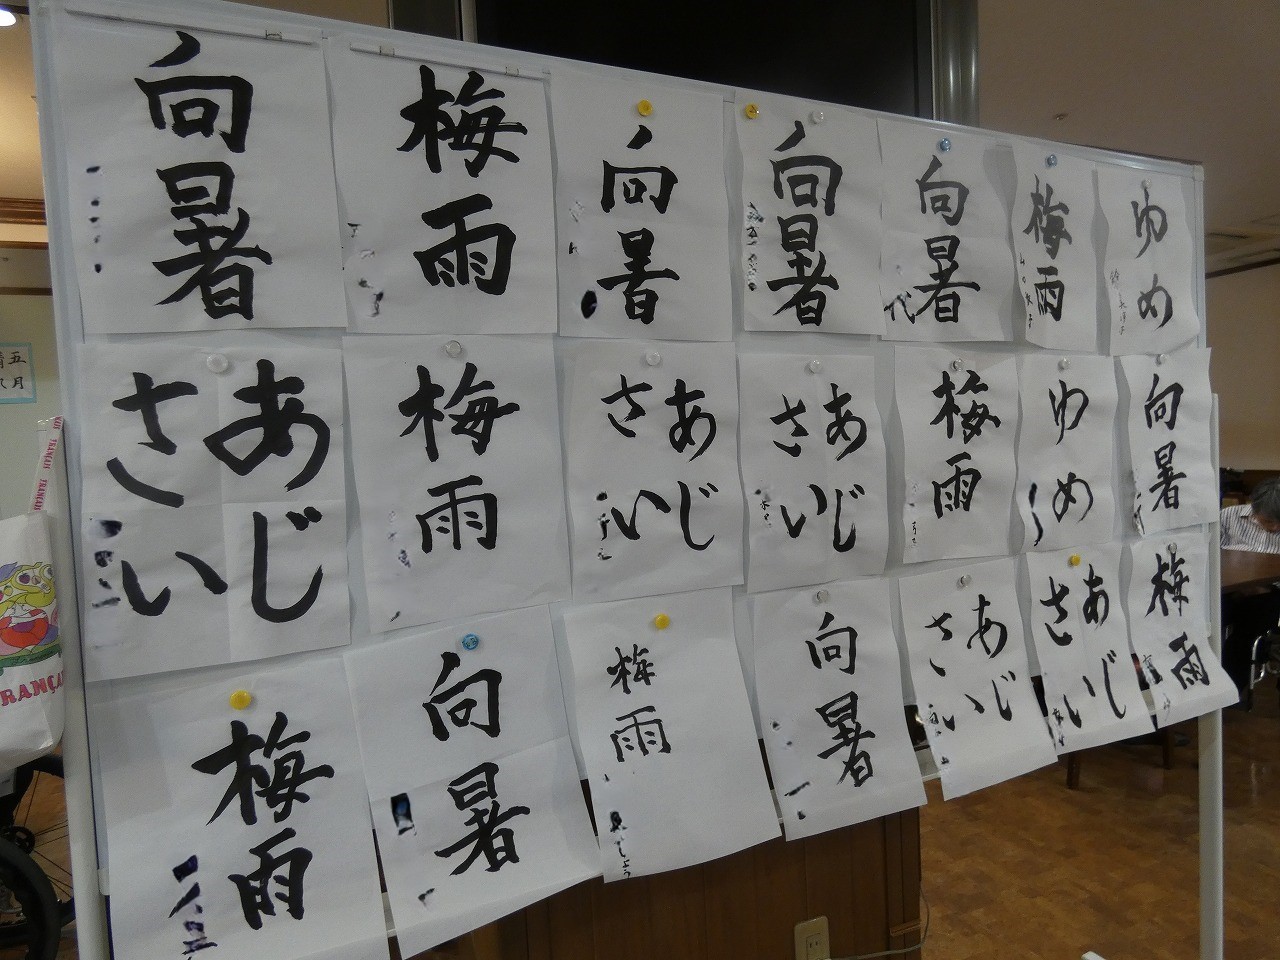 向暑
梅雨
向暑
向暑
向暑
梅雨
ゆめ
あじ
さい
梅雨
あじ
さい
あじ
さい
梅雨
ゆめ
向暑
梅雨
向暑
梅雨
向暑
あじ
さい
あじ
さい
梅雨
五月
FRANÇAIS